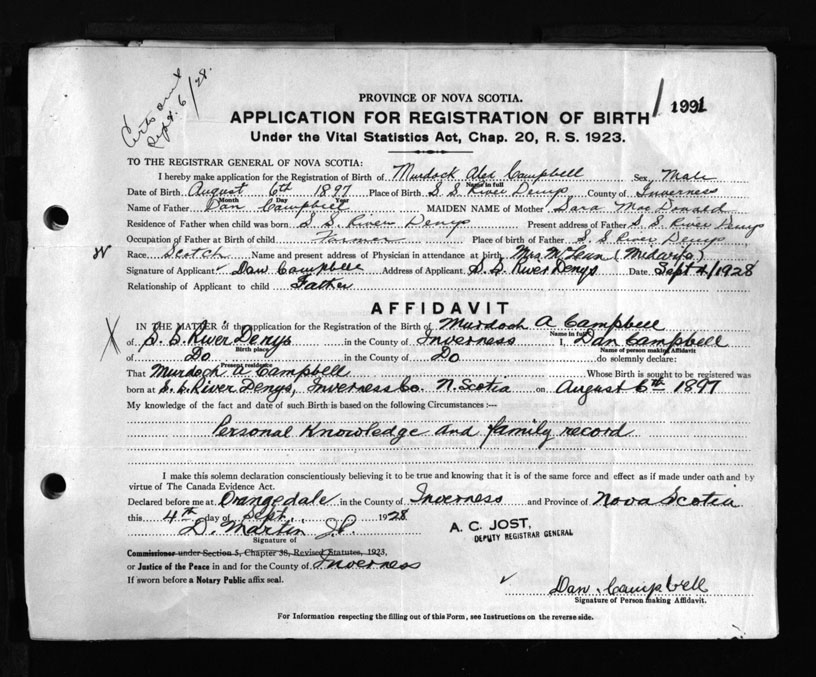 Certs and
Sept. 6/28.
PROVINCE OF NOVA SCOTIA.
1991
APPLICATION FOR REGISTRATION OF BIRTH
Under the Vital Statistics Act, Chap. 20, R. S. 1923.
TO THE REGISTRAR GENERAL OF NOVA SCOTIA:
I hereby make application for the Registration of Birth of Murdock Alex Campbell Sex Male
Name in full
Date of Birth August 6th 1897 Place of Birth S. S River Denys County of Inverness
Month Day Year
Name of Father Dan Campbell MAIDEN NAME of Mother Sara MacDonald
Residence of Father when child was born S. S River Denys Present address of Father S. S. River Denys
Occupation of Father at Birth of child Farmer Place of birth of Father S. S River Denys
Race Scotch Name and present address of Physician in attendance at birth Mrs. McLean
Signature of Applicant Dan Campbell Address of Applicant S. S. River Denys Date Sept 4/1928
Relationship of Applicant to child Father
AFFIDAVIT
IN THE MATTER of the application for the Registration of the Birth of Murdoch A Campbell
Name in full
of S. S River Denys in the County of Inverness I, Dan Campbell
Birth place Name of person making Affidavit
of Do in the County of Do do solemnly declare:
Present residence
That Murdoch A Campbell Whose Birth is sought to be registered was
born at S. S. River Denys, Inverness Co. N. Scotia on August 6th 1897
My knowledge of the fact and date of such Birth is based on the following Circumstances :—
Personal Knowledge and family record
I make this solemn declaration conscientiously believing it to be true and knowing that it is of the same force and effect as if made under oath and by
virtue of The Canada Evidence Act.
Declared before me at Orangedale in the County of Inverness and Province of Nova Scotia
this 4th day of Sept. 1928
D. Martin J.P.
Signature of
A. C. JOST,
DEPUTY REGISTRAR GENERAL
Commissioner under Section 5, Chapter 38, Revised Statutes, 1923,
or Justice of the Peace in and for the County of Inverness
If sworn before a Notary Public affix seal.
Dan Campbell
Signature of Person making Affidavit.
For Information respecting the filling out of this Form, see Instructions on the reverse side.